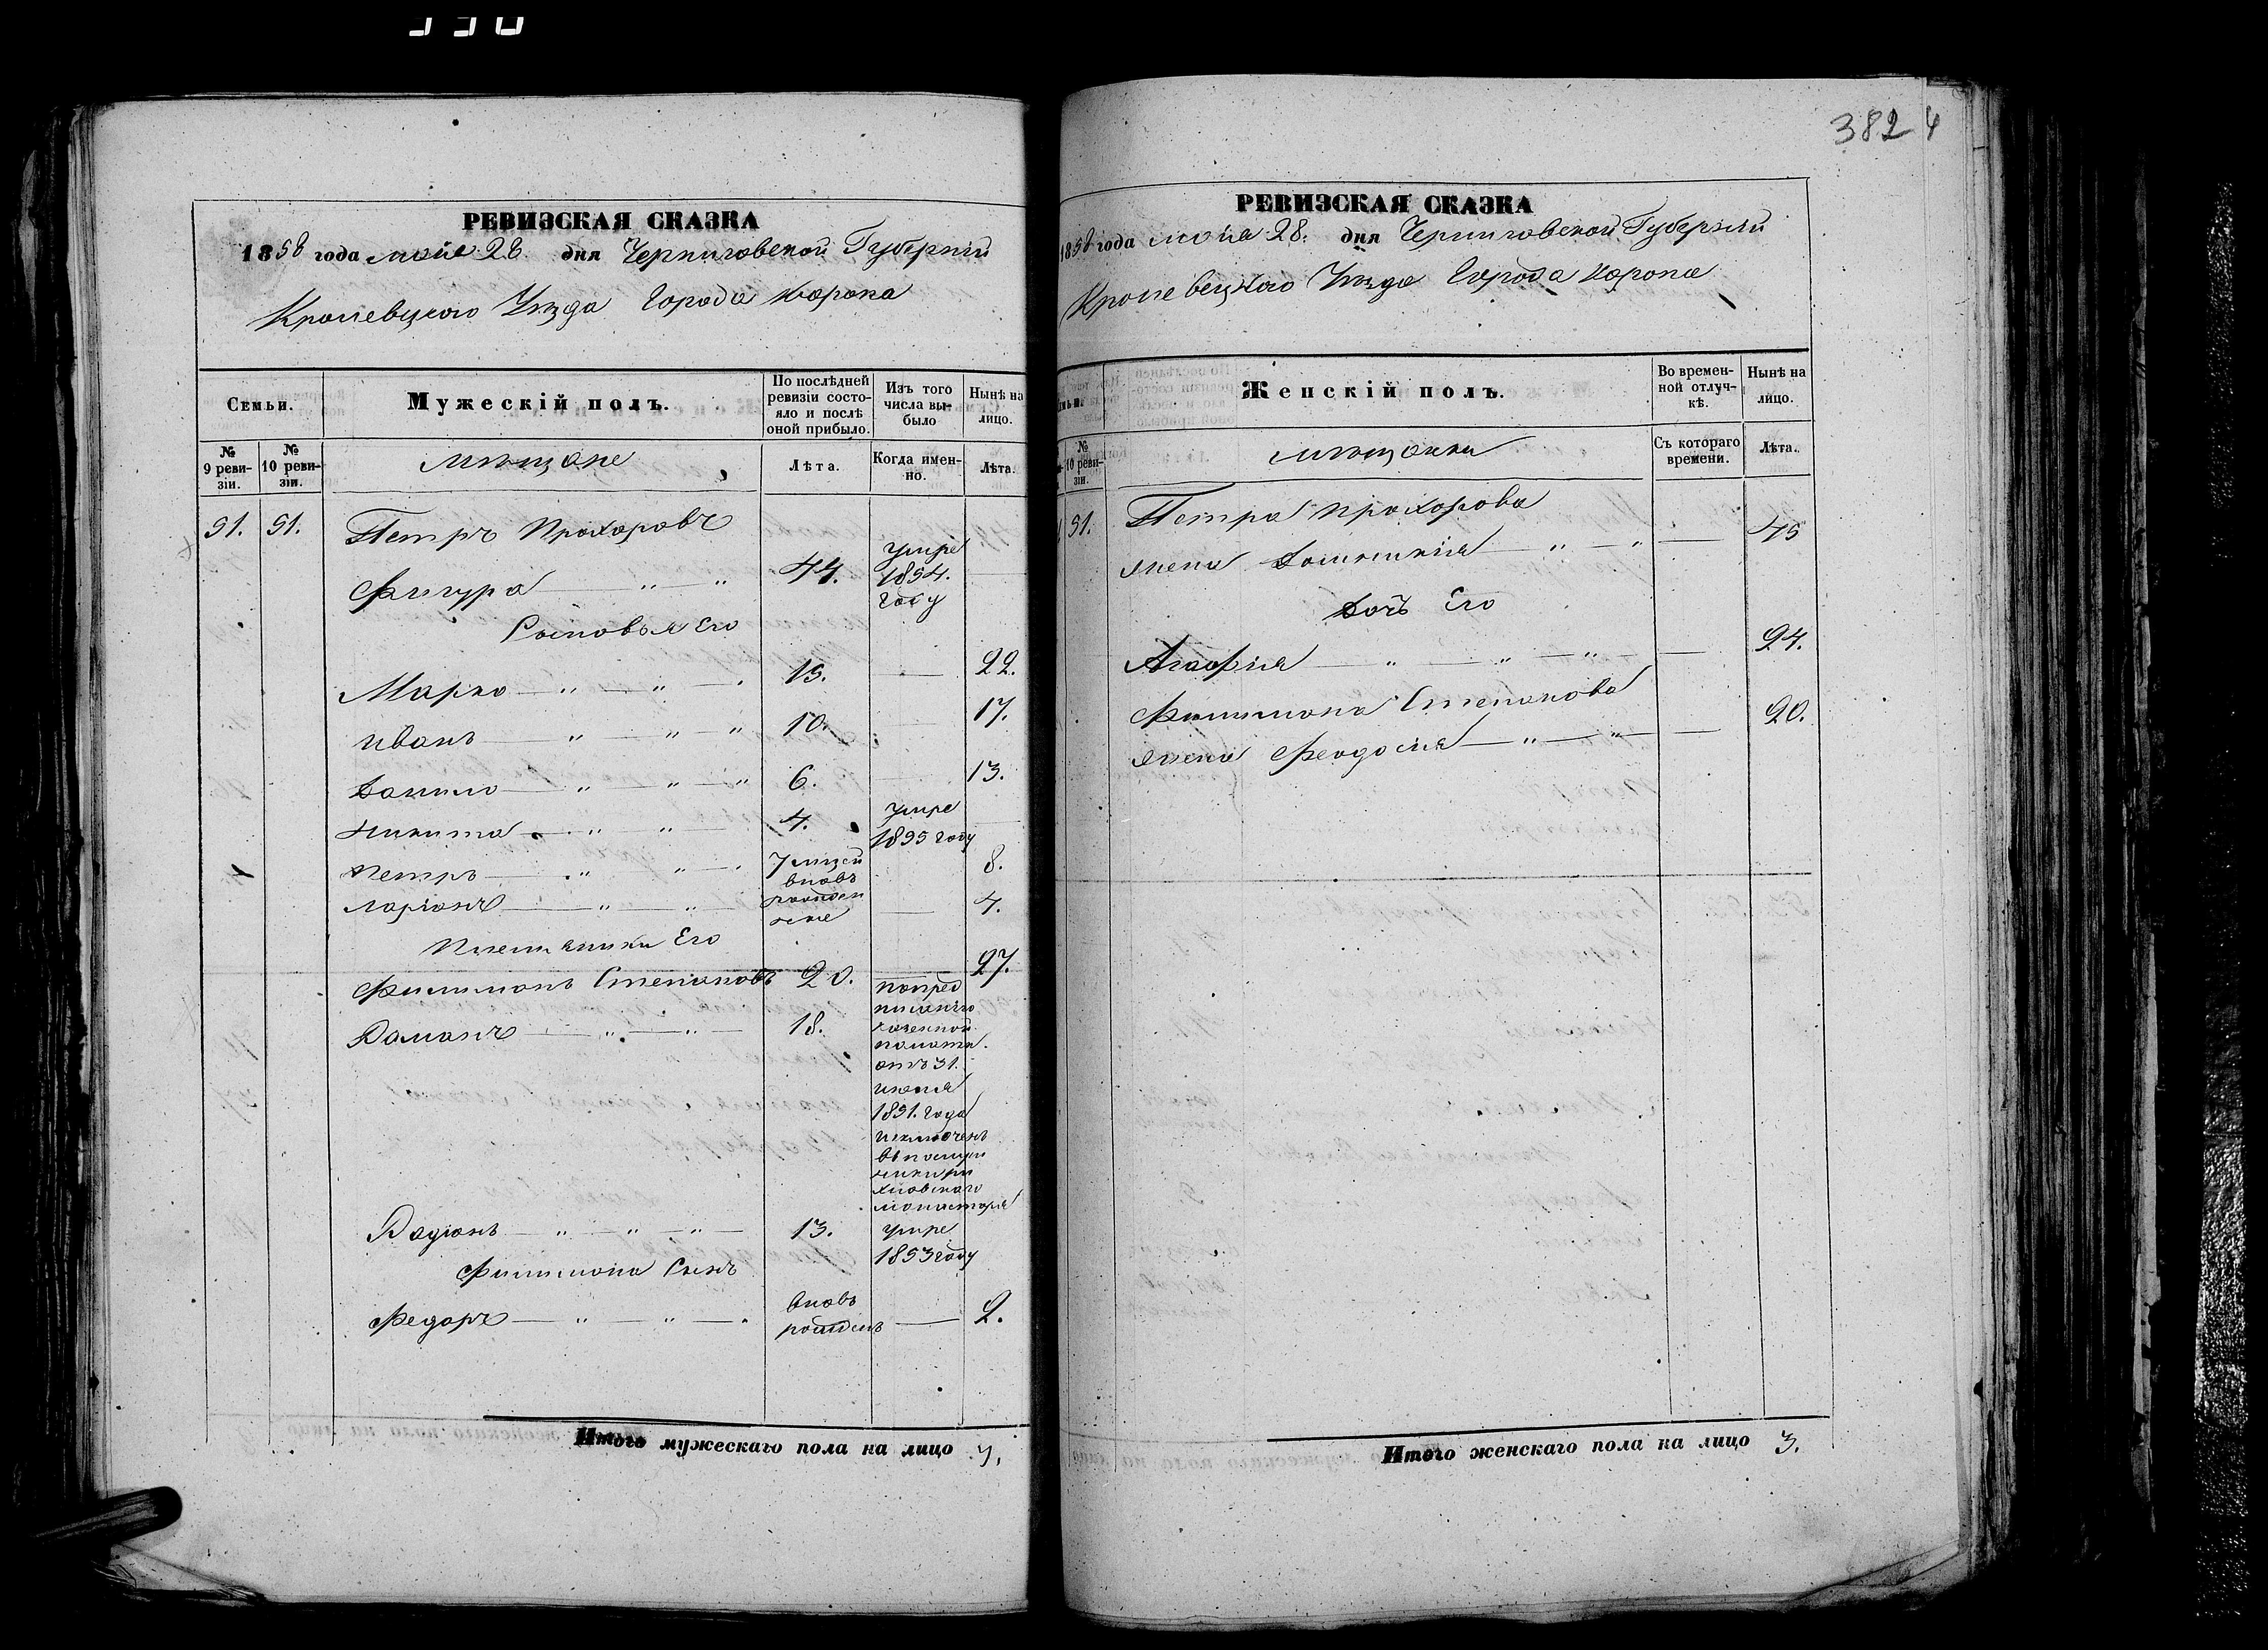 382 4
РЕВИЗСКАЯ СКАЗКА
1858 года мая 28 дня Черниговской Губерніи
Кролевецкого Уезда Города Коропа
Семьи.
Мужескій полъ.
По послѣдней ревизіи состояло и послѣ оной прибыло.
Изъ того числа выбыло
Нынѣ на лицо.
№ 9 ревизіи.
№ 10 ревизіи.
мещане
Лѣта.
Когда именно.
Лѣта.
51. 51. Петръ Прохоровъ
Фигура 44. умре 1854. году
Сыновья Его
Марко 15. 22.
Иванъ 10. 17.
Данило 6. 13.
Никита 4. умре 1855 году
Петръ 7 мъсец 8.
Ларіонъ вновь рожден 4.
Племяники Его
Филимонъ Степановъ 20. 27.
Романъ 18. по пред
писанію
казенной
палаты
отъ 31.
июля
1851. года
исключенъ
въ послуш
ники ри
хловского
монастиря
Родіонъ 13. умре 1853 году
Филимона Сынъ
Федоръ вновь рожденъ 2.
Итого мужескаго пола на лицо 7.
РЕВИЗСКАЯ СКАЗКА
1858 года мая 28. дня Черниговской Губерніи
Кролевецкого Уезда Города Коропа
Женскій полъ.
Во временной отлучкѣ.
Нынѣ на лицо.
№ 10 ревизіи.
мещанки
Съ котораго времени.
Лѣта.
51. Петра Прохорова
жена Домникія 45
Дочь Его
Агафія 24.
Филимона Степанова
жена Феодосия 20.
Итого женскаго пола на лицо 3.